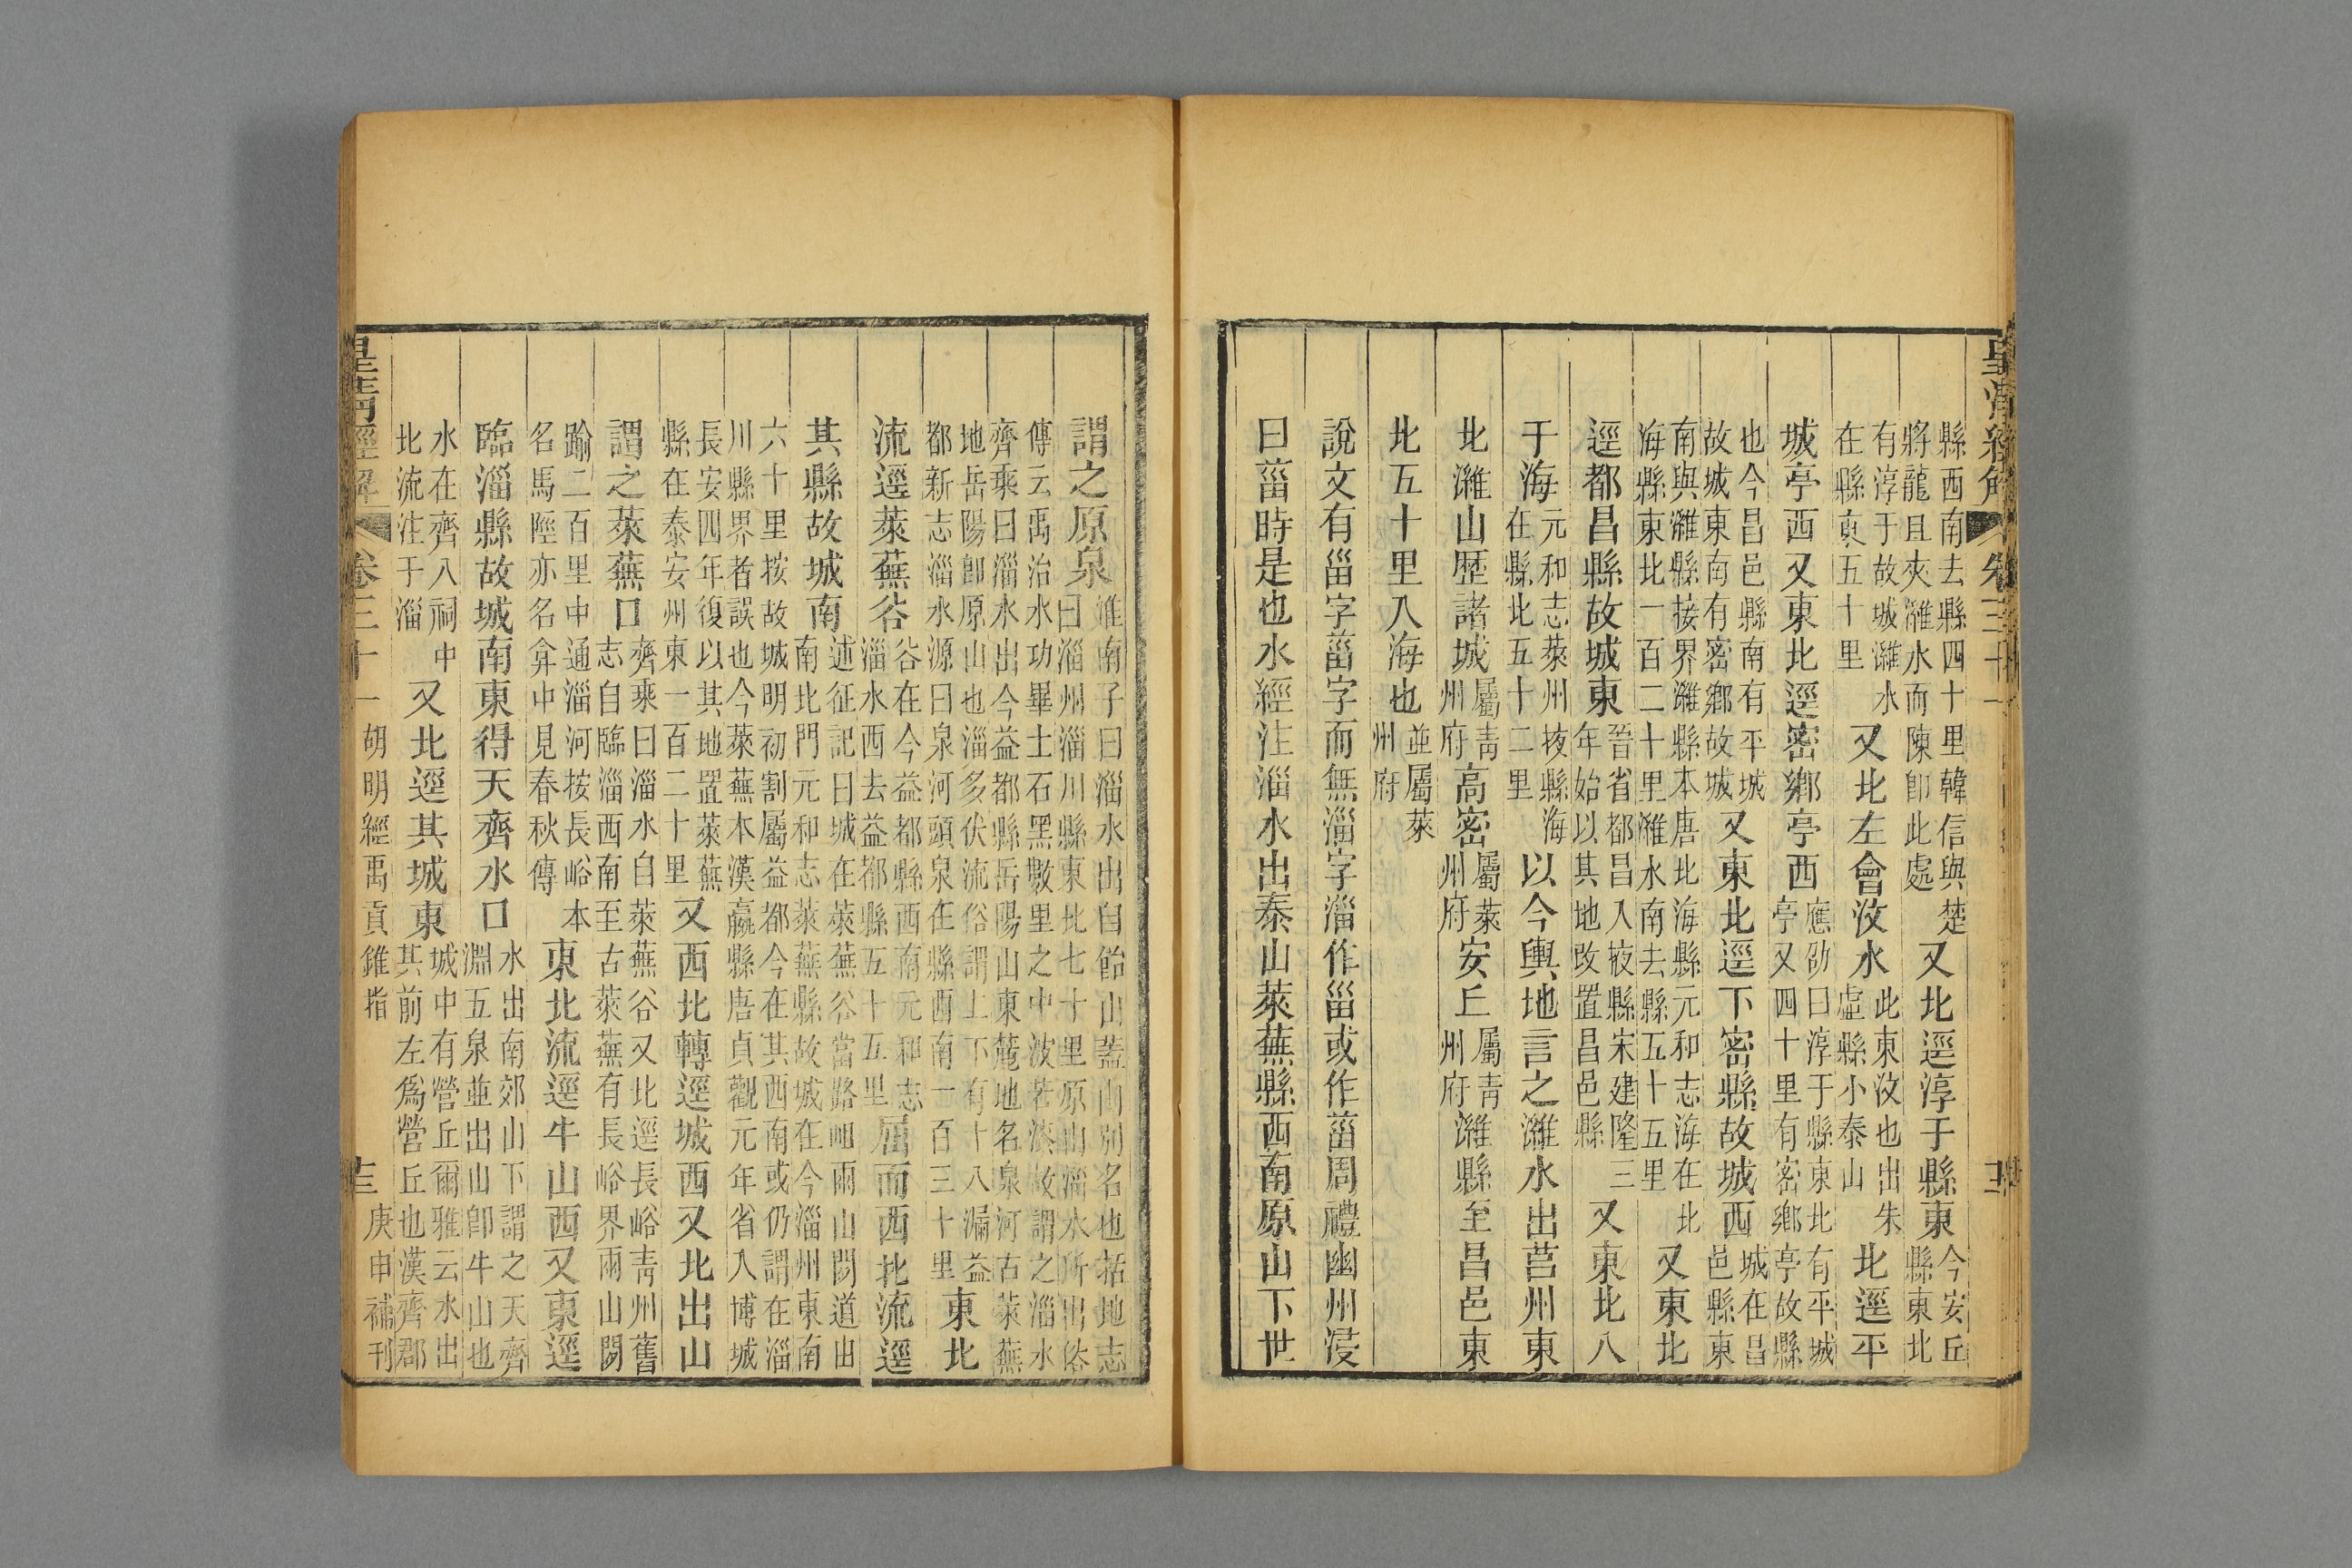 皇清經解 卷三十一
縣西南去縣四十里韓信與楚
將龍且夾濰水而陳卽此處
又北逕淳于縣東
今安丘
縣東北
有淳于故城濰水
在縣東五十里
又北左會汶水
此東汶也出朱
虛縣小泰山
北逕平
城亭西又東北逕密鄉亭西
應劭曰淳于縣東北有平城
亭又四十里有密鄉亭故縣
也今昌邑縣南有平城
故城東南有密鄉故城
又東北逕下密縣故城西
城在昌
邑縣東
南與濰縣接界濰縣本唐北海縣元和志海在北
海縣東北一百二十里濰水南去縣五十五里
又東北
逕都昌縣故城東
晉省都昌入掖縣宋建隆三
年始以其地改置昌邑縣
又東北入
于海
元和志萊州掖縣海
在縣北五十二里
以今輿地言之濰水出莒州東
北濰山歷諸城
屬青
州府
高密
屬萊
州府
安丘
屬青
州府
濰縣至昌邑東
北五十里入海也
並屬萊
州府
說文有甾字菑字而無淄字淄作甾或作菑周禮幽州浸
曰菑時是也水經注淄水出泰山萊蕪縣西南原山下世
謂之原泉
淮南子曰淄水出自飴山蓋山別名也括地志
曰淄州淄川縣東北七十里原山淄水所出俗
傳云禹治水功畢土石黑數里之中波若漆故謂之淄水
齊乘曰淄水出今益都縣岳陽山東麓地名泉河古萊蕪
地岳陽卽原山也淄多伏流俗謂上下有十八漏益
都新志淄水源曰泉河頭泉在縣西南一百三十里
東北
流逕萊蕪谷
谷在今益都縣西南元和志
淄水西去益都縣五十五里
屈而西北流逕
其縣故城南
述征記曰城在萊蕪谷當路岨兩山閒道由
南北門元和志萊蕪縣故城在今淄州東南
六十里按故城明初割屬益都今在其西南或仍謂在淄
川縣界者誤也今萊蕪本漢嬴縣唐貞觀元年省入博城
長安四年復以其地置萊蕪
縣在泰安州東一百二十里
又西北轉逕城西又北出山
謂之萊蕪口
齊乘曰淄水自萊蕪谷又北逕長峪青州舊
志自臨淄西南至古萊蕪有長峪界兩山閒
踰二百里中通淄河按長峪本
名馬陘亦名弇中見春秋傳
東北流逕牛山西又東逕
臨淄縣故城南東得天齊水口
水出南郊山下謂之天齊
淵五泉並出山卽牛山也
水在齊八祠中
北流注于淄
又北逕其城東
城中有營丘爾雅云水出
其前左爲營丘也漢齊郡
皇清經解 卷三十一 胡明經禹貢錐指 庚申補刊